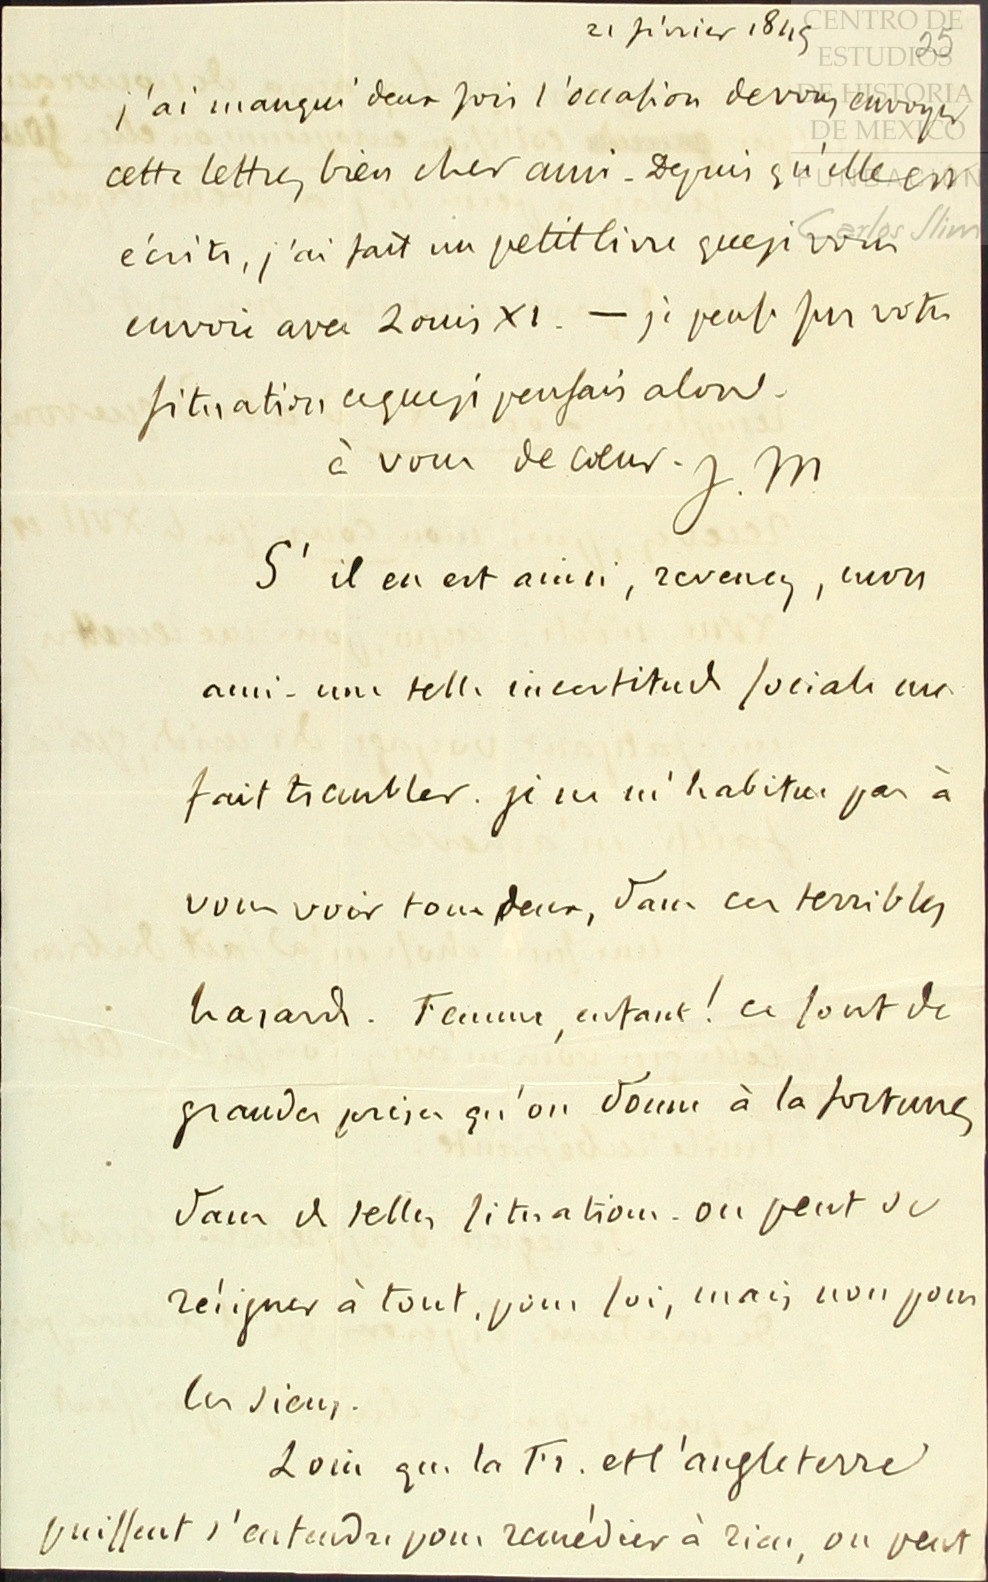 21 février 1845
25
CENTRO DE
ESTUDIOS
DE HISTORIA
DE MEXICO
FUNDACIÓN
Carlos Slim
j'ai manqué deux fois l'occasion de vous envoyer
cette lettre, bien cher ami - Depuis qu'elle est
écrite, j'ai fait un petit livre que je vous
envoie avec Louis XI. — je pense sur votre
situation ce que je pensais alors.
à vous de cœur. J. M
S'il en est ainsi, revenez, mon
ami - une telle incertitude sociale me
fait trembler. je ne m'habitue pas à
vous voir tous deux, dans ces terribles
hasards. Femme, enfant! ce sont de
grandes prises qu'on donne à la fortune,
dans de telles situations. on peut se
résigner à tout, pour soi, mais non pour
les siens.
Loin que la Fr. et l'angleterre
puissent s'entendre pour remédier à rien, on peut